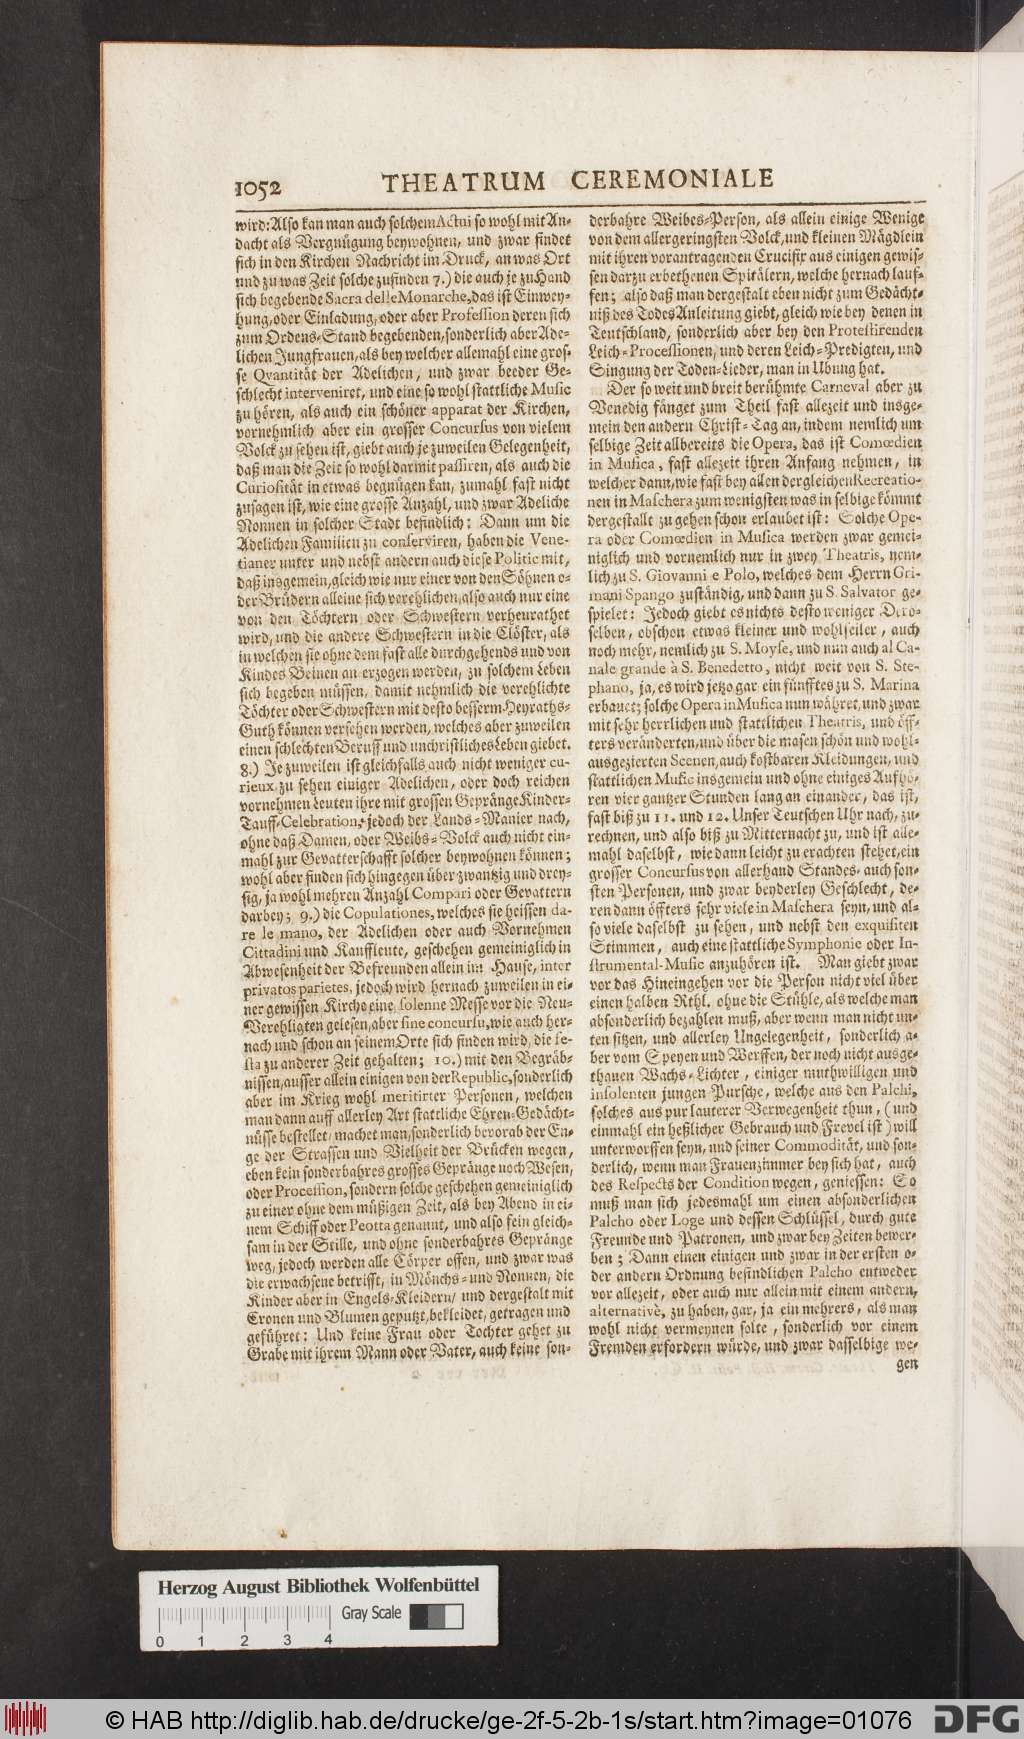 1052 THEATRUM CEREMONIALE
wird: Also kan man auch solchem Actui so wohl mit An-
dacht als Vergnügung beywohnen, und zwar findet
sich in den Kirchen Nachricht im Druck, an was Ort
und zu was Zeit solche zufinden 7.) die auch je zu Hand
sich begebende Sacra delle Monarche, das ist Einwey-
hung, oder Einladung, oder aber Profession deren sich
zum Ordens-Stand begebenden, sonderlich aber Ade-
lichen Jungfrauen, als bey welcher allemahl eine gros-
se Qvantität der Adelichen, und zwar beeder Ge-
schlecht interveniret, und eine so wohl stattliche Music
zu hören, als auch ein schöner apparat der Kirchen,
vornehmlich aber ein grosser Concursus von vielem
Volck zu sehen ist, giebt auch je zuweilen Gelegenheit,
daß man die Zeit so wohl darmit passiren, als auch die
Curiosität in etwas begnügen kan, zumahl fast nicht
zusagen ist, wie eine grosse Anzahl, und zwar Adeliche
Nonnen in solcher Stadt befindlich: Dann um die
Adelichen Familien zu conserviren, haben die Vene-
tianer unter und nebst andern auch diese Politic mit,
daß insgemein, gleich wie nur einer von den Söhnen o-
der Brüdern alleine sich verehlichen, also auch nur eine
von den Töchtern oder Schwestern verheurathet
wird, und die andere Schwestern in die Clöster, als
in welchen sie ohne dem fast alle durchgehends und von
Kindes Beinen an erzogen werden, zu solchem Leben
sich begeben müssen, damit nehmlich die verehlichte
Töchter oder Schwestern mit desto besserm Heyraths-
Guth können versehen werden, welches aber zuweilen
einen schlechten Beruff und unchristliches Leben giebet.
8.) Je zuweilen ist gleichfalls auch nicht weniger cu-
rieux zu sehen einiger Adelichen, oder doch reichen
vornehmen Leuten ihre mit grossen Gepränge Kinder-
Tauff-Celebration, jedoch der Lands-Manier nach,
ohne daß Damen, oder Weibs-Volck auch nicht ein-
mahl zur Gevatterschafft solcher beywohnen können;
wohl aber finden sich hingegen über zwantzig und drey-
sig, ja wohl mehren Anzahl Compari oder Gevattern
darbey; 9.) die Copulationes, welches sie heissen da-
re le mano, der Adelichen oder auch Vornehmen
Cittadini und Kauffleute, geschehen gemeiniglich in
Abwesenheit der Befreunden allein im Hause, inter
privatos parietes, jedoch wird hernach zuweilen in ei-
ner gewissen Kirche eine solenne Messe vor die Neu-
Verehligten gelesen, aber sine concursu, wie auch her-
nach und schon an seinem Orte sich finden wird, die fe-
sta zu anderer Zeit gehalten; 10.) mit den Begräb-
nissen, ausser allein einigen von der Republic, sonderlich
aber im Krieg wohl meritirter Personen, welchen
man dann auff allerley Art stattliche Ehren-Gedächt-
nüsse bestellet/ machet man, sonderlich bevorab der En-
ge der Strassen und Vielheit der Brücken wegen,
eben kein sonderbahres grosses Gepränge noch Wesen,
oder Procession, sondern solche geschehen gemeiniglich
zu einer ohne dem müßigen Zeit, als bey Abend in ei-
nem Schiff oder Peotta genannt, und also fein gleich-
sam in der Stille, und ohne sonderbahres Gepränge
weg, jedoch werden alle Cörper offen, und zwar was
die erwachsene betrifft, in Mönchs- und Nonnen, die
Kinder aber in Engels-Kleidern/ und dergestalt mit
Cronen und Blumen geputzt, bekleidet, getragen und
geführet: Und keine Frau oder Tochter gehet zu
Grabe mit ihrem Mann oder Vater, auch keine son-
derbahre Weibes-Person, als allein einige Wenige
von dem allergeringsten Volck, und kleinen Mägdlein
mit ihren vorantragenden Crucifix aus einigen gewis-
sen darzu erbethenen Spitälern, welche hernach lauf-
fen; also daß man dergestalt eben nicht zum Gedächt-
niß des Todes Anleitung giebt, gleich wie bey denen in
Teutschland, sonderlich aber bey den Protestirenden
Leich-Processionen, und deren Leich-Predigten, und
Singung der Toden-Lieder, man in Ubung hat.
Der so weit und breit berühmte Carneval aber zu
Venedig fänget zum Theil fast allezeit und insge-
mein den andern Christ-Tag an, indem nemlich um
selbige Zeit allbereits die Opera, das ist Comœdien
in Musica, fast allezeit ihren Anfang nehmen, in
welcher dann, wie fast bey allen dergleichen Recreatio-
nen in Maschera zum wenigsten was in selbige kömmt
dergestallt zu gehen schon erlaubet ist: Solche Ope-
ra oder Comœdien in Musica werden zwar gemei-
niglich und vornemlich nur in zwey Theatris, nem-
lich zu S. Giovanni e Polo, welches dem Herrn Gri-
mani Spango zuständig, und dann zu S. Salvator ge-
spielet: Jedoch giebt es nichts desto weniger Dero-
selben, obschon etwas kleiner und wohlfeiler, auch
noch mehr, nemlich zu S. Moyse, und nun auch al Ca-
nale grande à S. Benedetto, nicht weit von S. Ste-
phano, ja, es wird jetzo gar ein fünfftes zu S. Marina
erbauet; solche Opera in Musica nun währet, und zwar
mit sehr herrlichen und stattlichen Theatris, und öff-
ters veränderten, und über die masen schön und wohl-
ausgezierten Scenen, auch kostbaren Kleidungen, und
stattlichen Music insgemein und ohne einiges Aufhö-
ren vier gantzer Stunden lang an einander, das ist,
fast biß zu 11. und 12. Unser Teutschen Uhr nach, zu-
rechnen, und also biß zu Mitternacht zu, und ist alle-
mahl daselbst, wie dann leicht zu erachten stehet, ein
grosser Concursus von allerhand Standes- auch son-
sten Personen, und zwar beyderley Geschlecht, de-
ren dann öffters sehr viele in Maschera seyn, und al-
so viele daselbst zu sehen, und nebst den exquisiten
Stimmen, auch eine stattliche Symphonie oder In-
strumental-Music anzuhören ist. Man giebt zwar
vor das Hineingehen vor die Person nicht viel über
einen halben Rthl. ohne die Stühle, als welche man
absonderlich bezahlen muß, aber wenn man nicht un-
ten sitzen, und allerley Ungelegenheit, sonderlich a-
ber vom Speyen und Werffen, der noch nicht ausge-
thauen Wachs-Lichter, einiger muthwilligen und
insolenten jungen Pursche, welche aus den Palchi,
solches aus pur lauterer Verwegenheit thun, (und
einmahl ein heßlicher Gebrauch und Frevel ist) will
unterworffen seyn, und seiner Commodität, und son-
derlich, wenn man Frauenzimmer bey sich hat, auch
des Respects der Condition wegen, geniessen: So
muß man sich jedesmahl um einen absonderlichen
Palcho oder Loge und dessen Schlüssel, durch gute
Freunde und Patronen, und zwar bey Zeiten bewer-
ben; Dann einen einigen und zwar in der ersten o-
der andern Ordnung befindlichen Palcho entweder
vor allezeit, oder auch nur allein mit einem andern,
alternativè, zu haben, gar, ja ein mehrers, als man
wohl nicht vermeynen solte, sonderlich vor einem
Fremden erfordern würde, und zwar dasselbige we-
gen
Herzog August Bibliothek Wolfenbüttel
Gray Scale
0 1 2 3 4
© HAB http://diglib.hab.de/drucke/ge-2f-5-2b-1s/start.htm?image=01076
DFG